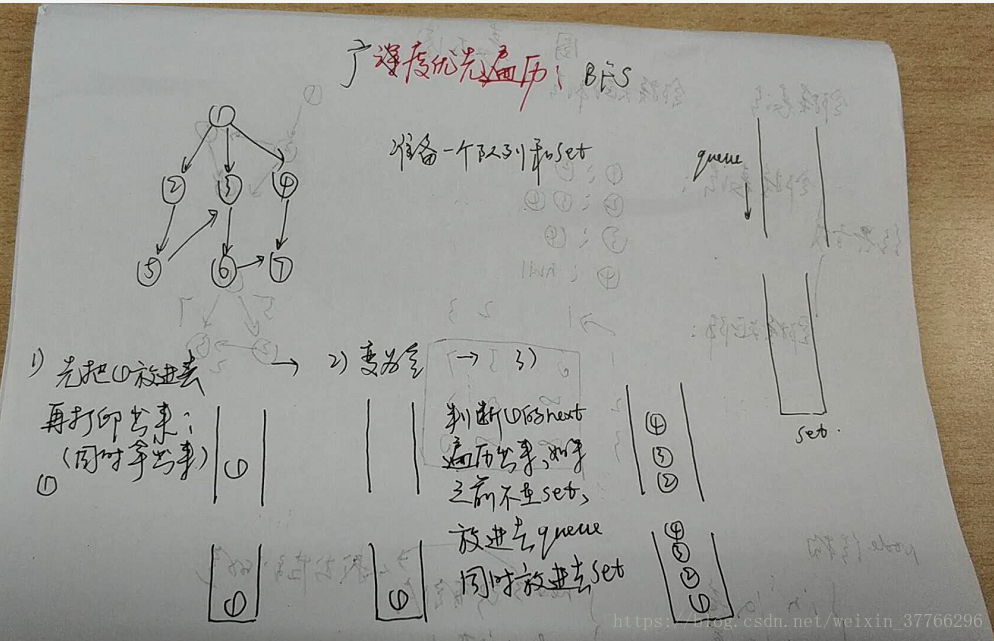 广深度优先遍历: BFS
准备一个队列和set
queue
①
② ③ ④
⑤ ⑥ ⑦
set.
1) 先把①放进去
再打印出来;
(同时拿出来)
①
①
①
→ 2) 变为空
①
→ 3)
判断①的next
遍历出来,如果
之前不在set,
放进去queue
同时放进去set
④
③
②
④
③
②
①
https://blog.csdn.net/weixin_37766296